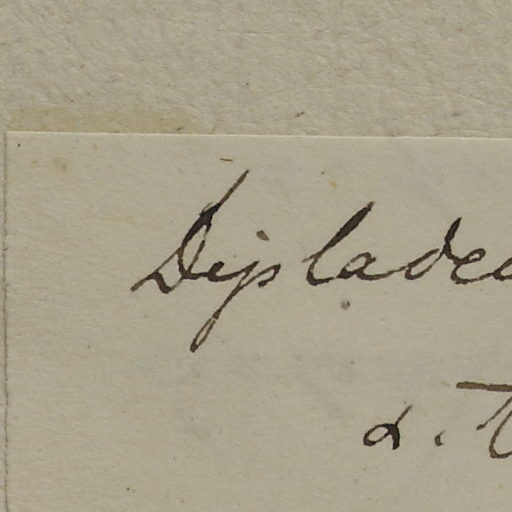 Dipladea
α. T